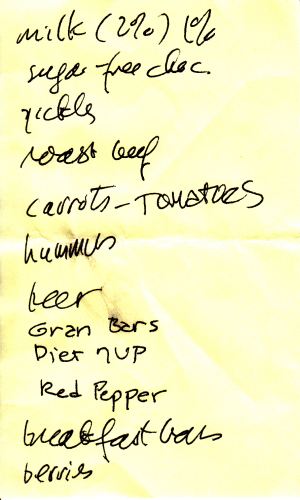 milk (2%) 1%
sugar free choc.
pickles
roast beef
carrots - TOMATOES
hummus
beer
Gran Bars
Diet 7UP
Red Pepper
breakfast bars
berries